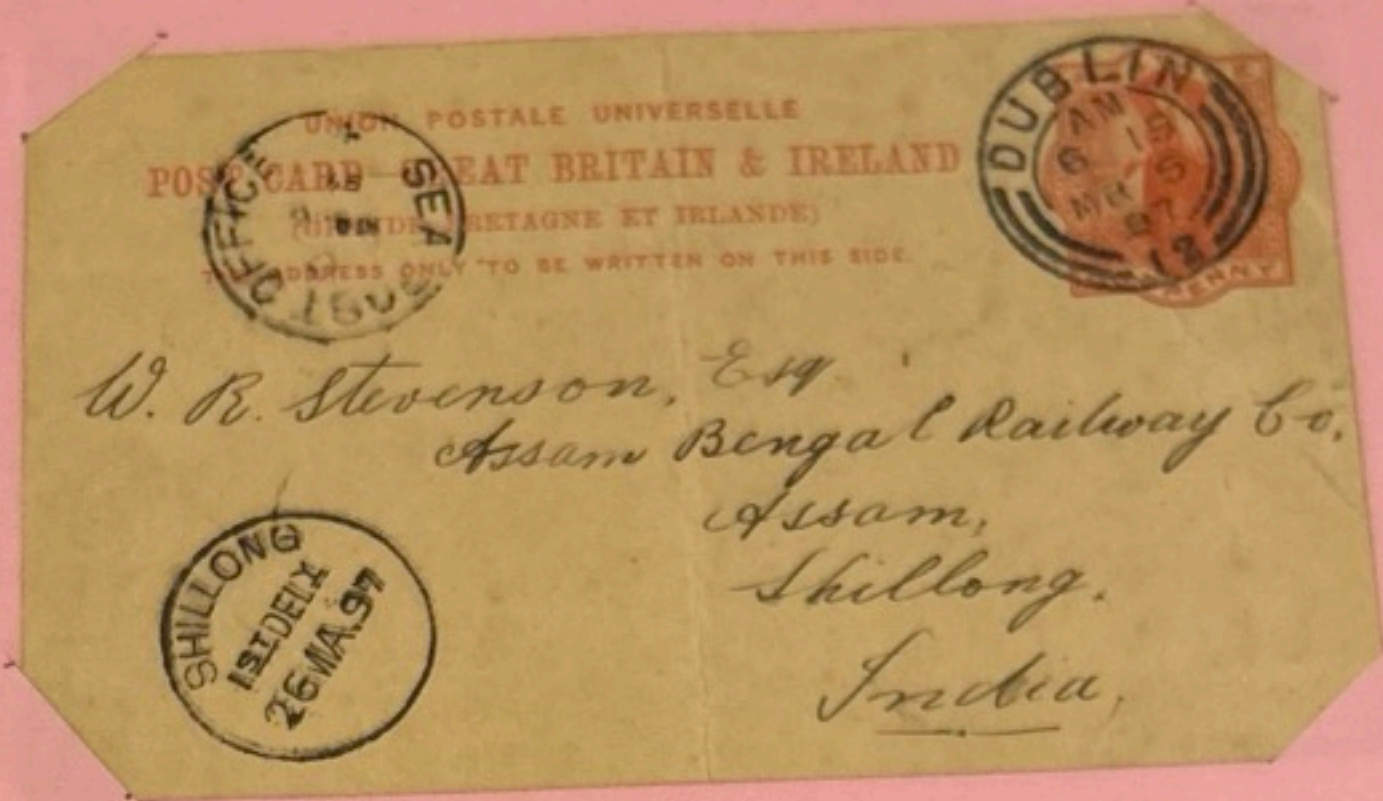 UNION POSTALE UNIVERSELLE
POST CARD GREAT BRITAIN & IRELAND
(GRANDE BRETAGNE ET IRLANDE)
THE ADDRESS ONLY TO BE WRITTEN ON THIS SIDE.
SEA POST OFFICE
DUBLIN
AM
6
MR
97
12
PENNY
W. R. Stevenson, Esq
Assam Bengal Railway Co.
Assam,
Shillong.
India.
SHILLONG
1ST DELY
26 MA.97